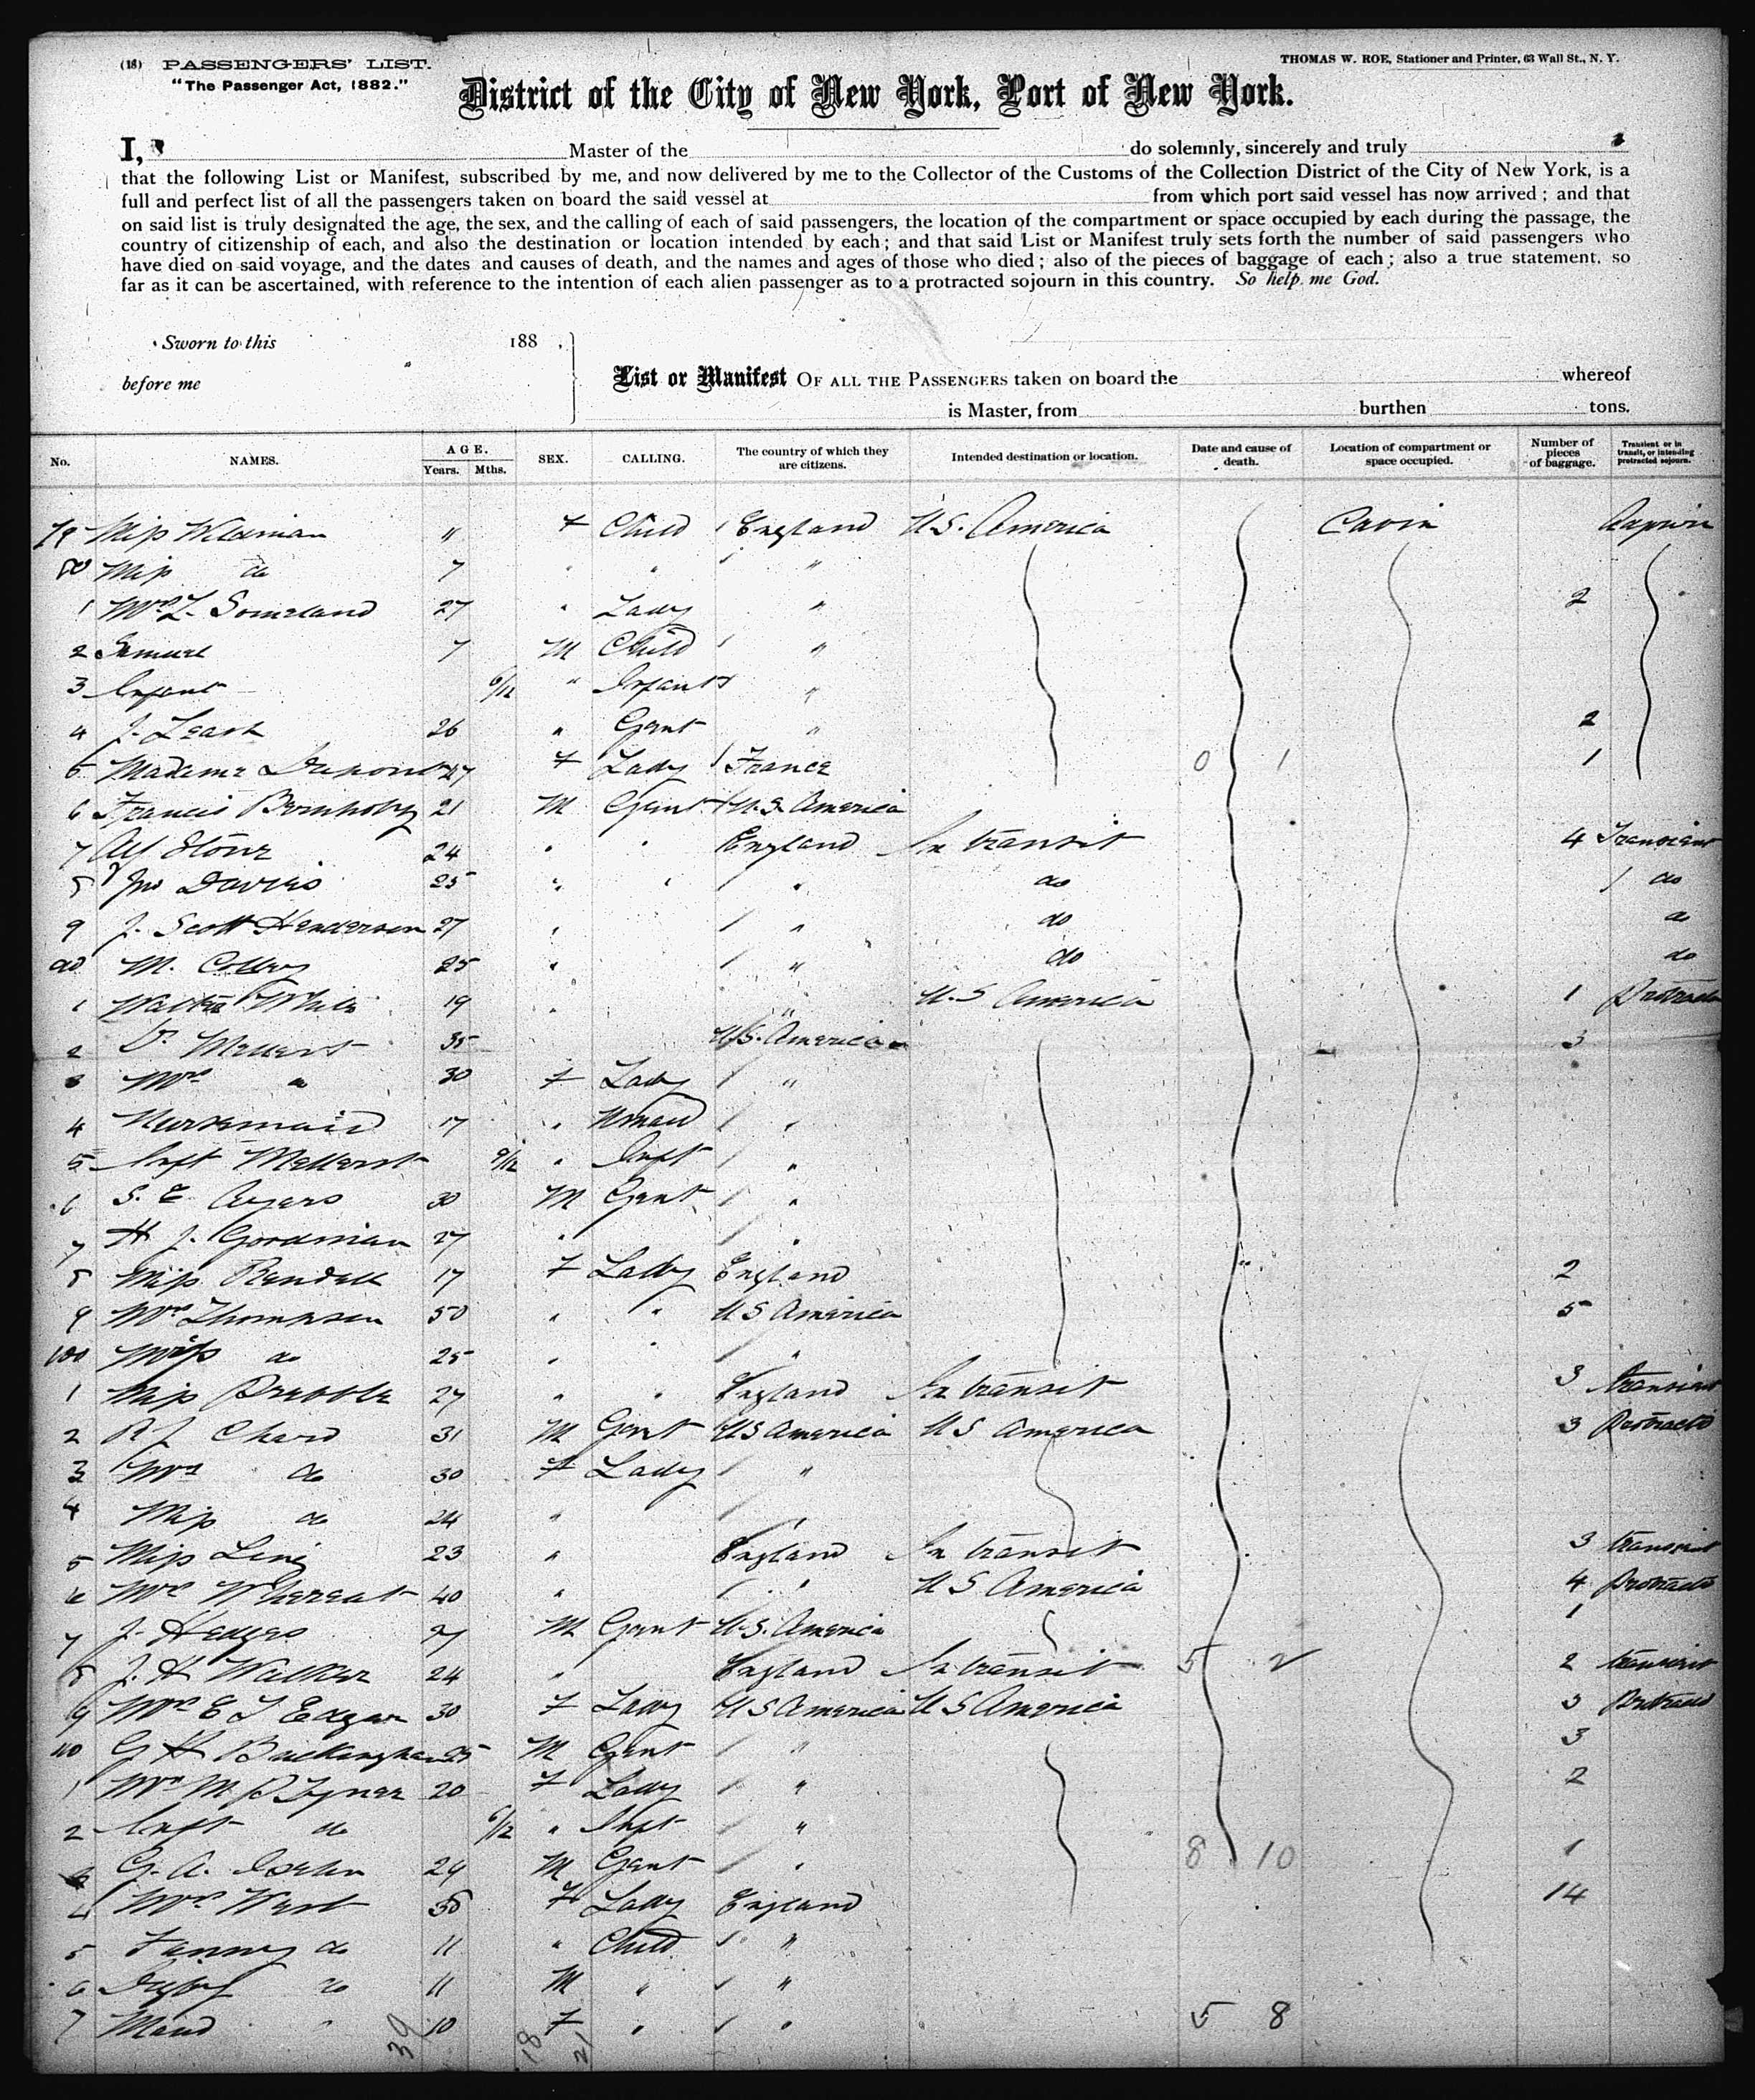 (18) PASSENGERS' LIST.
THOMAS W. ROE, Stationer and Printer, 63 Wall St., N. Y.
"The Passenger Act, 1882."
District of the City of New York, Port of New York.
I, Master of the do solemnly, sincerely and truly
that the following List or Manifest, subscribed by me, and now delivered by me to the Collector of the Customs of the Collection District of the City of New York, is a
full and perfect list of all the passengers taken on board the said vessel at from which port said vessel has now arrived; and that
on said list is truly designated the age, the sex, and the calling of each of said passengers, the location of the compartment or space occupied by each during the passage, the
country of citizenship of each, and also the destination or location intended by each; and that said List or Manifest truly sets forth the number of said passengers who
have died on said voyage, and the dates and causes of death, and the names and ages of those who died; also of the pieces of baggage of each; also a true statement, so
far as it can be ascertained, with reference to the intention of each alien passenger as to a protracted sojourn in this country. So help me God.
Sworn to this 188 ,
before me
List or Manifest OF ALL THE PASSENGERS taken on board the whereof
is Master, from burthen tons.
No. NAMES. AGE. Years. Mths. SEX. CALLING. The country of which they are citizens. Intended destination or location. Date and cause of death. Location of compartment or space occupied. Number of pieces of baggage. Transient or in transit, or intending protracted sojourn.
79 Miss Wildman " F Child England U.S. America
80 Miss do 7 " " "
1 Mrs Someland 27 " Lady " 2
2 Samuel 7 M Child "
3 Infant 6/12 " Infant "
4 J. Leask 26 " Gent " 2
5 Madame Dupont 27 F Lady France 0 1 1
6 Francis 21 M Gent U.S. America
7 Alf Stone 24 " " England In transit 4 Transient
8 Jno Davies 25 " " " do 1 do
9 J. Scott Henderson 27 " " do do
90 M. 25 " " do do
1 Walter White 19 " " U.S America 1 Protracted
2 Dr. 35 U.S. America 3
3 Mrs " 30 F Lady "
4 Nursemaid 17 " "
5 Inft 9/12 " Inft "
6 S. E. Ayers 30 M Gent "
7 H J. Goodman 27 " "
8 Miss Randall 17 F Lady England 2
9 Mrs Thompson 50 " " U S America 5
100 Miss do 25 " " "
1 Miss Prebble 27 " " England In transit 3 transient
2 R J Chard 31 M Gent U S America U S America 3 Protracted
3 Mrs do 30 F Lady "
4 Miss do 24 " "
5 Miss 23 " England In transit 3 transient
6 40 " " U S America 4 protracted
7 J. Hedges M Gent U.S. America 1
8 J. H Walker 24 " England In transit 5 2 2 transient
9 Mrs E J Edgar 30 F Lady U S America U S America 3 Protracted
110 G H Buckingham 25 M Gent " 3
1 Mrs M. P Tyner 20 F Lady " 2
2 Inft do 6/12 " Inft "
G. A. 29 M Gent " 8 10 1
4 Mrs West F Lady England 14
5 Fanny do 11 " Child "
6 do 11 M " "
7 Maud " 10 F " " 5 8
39 18 21